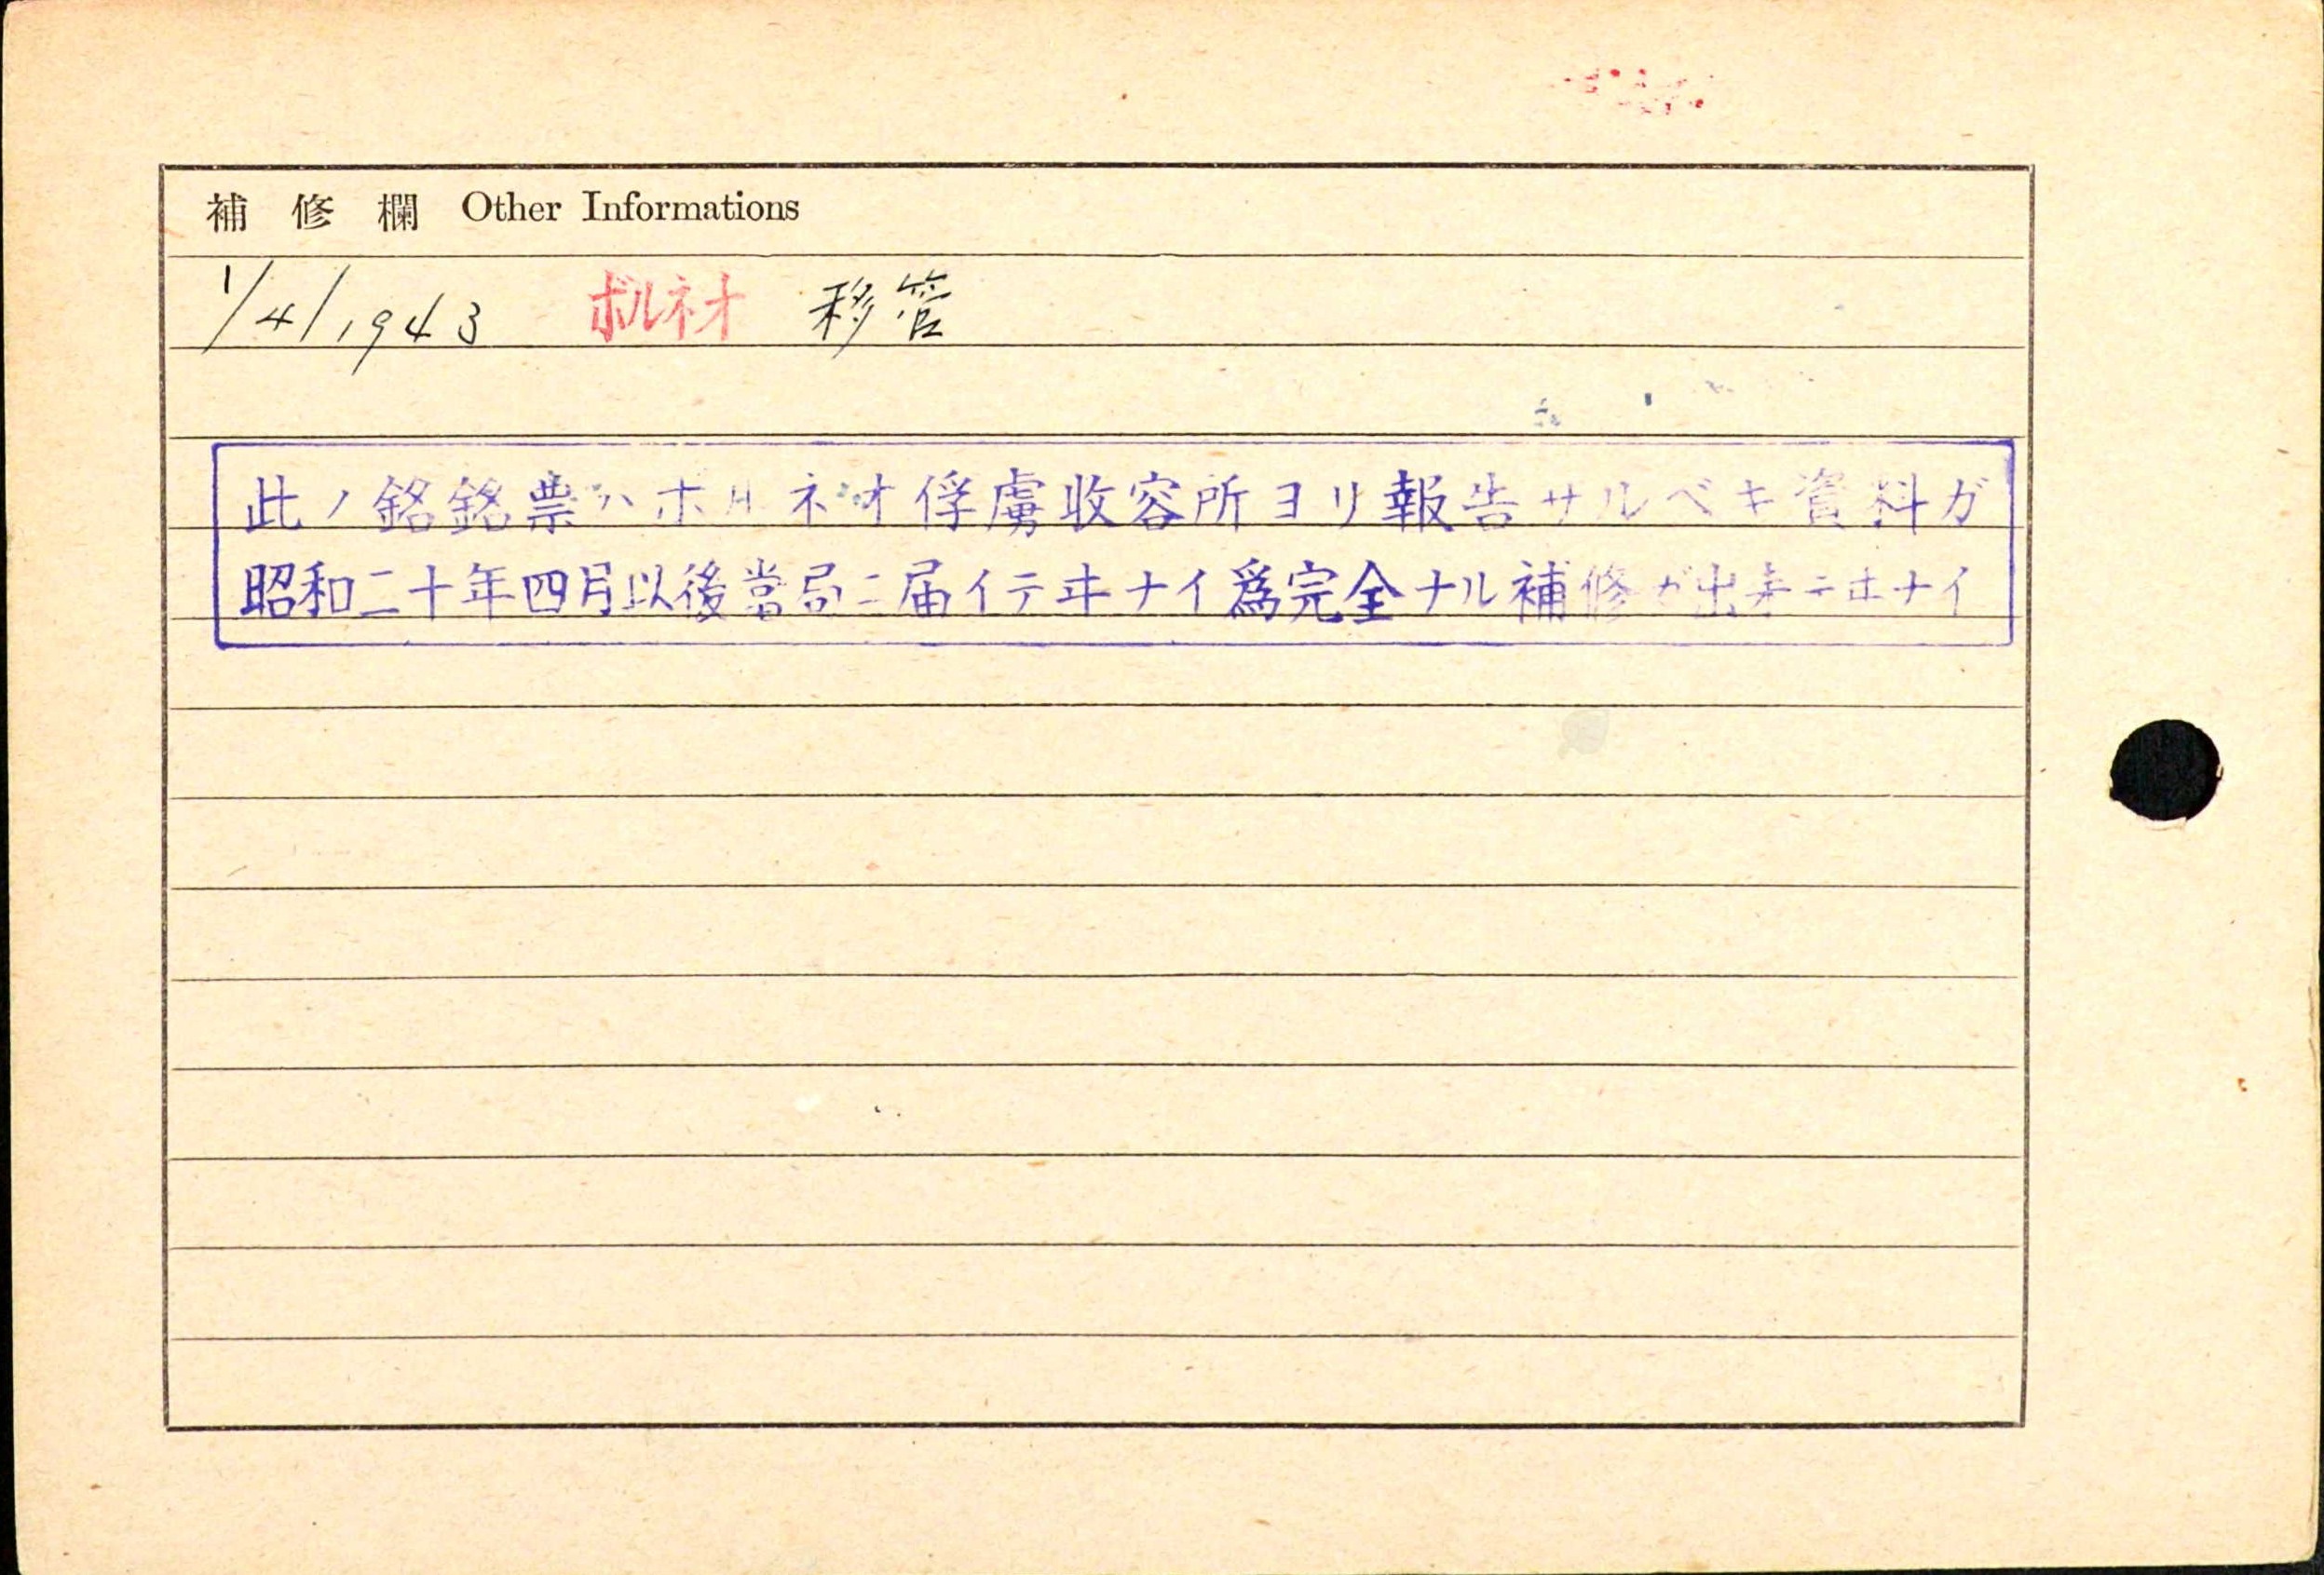 補修欄 Other Informations
1/4/1943 ボルネオ 移管
此ノ銘銘票ハボルネオ俘虜收容所ヨリ報告サルベキ資料ガ
昭和二十年四月以後當局ニ届イテヰナイ爲完全ナル補修ガ出来テヰナイ